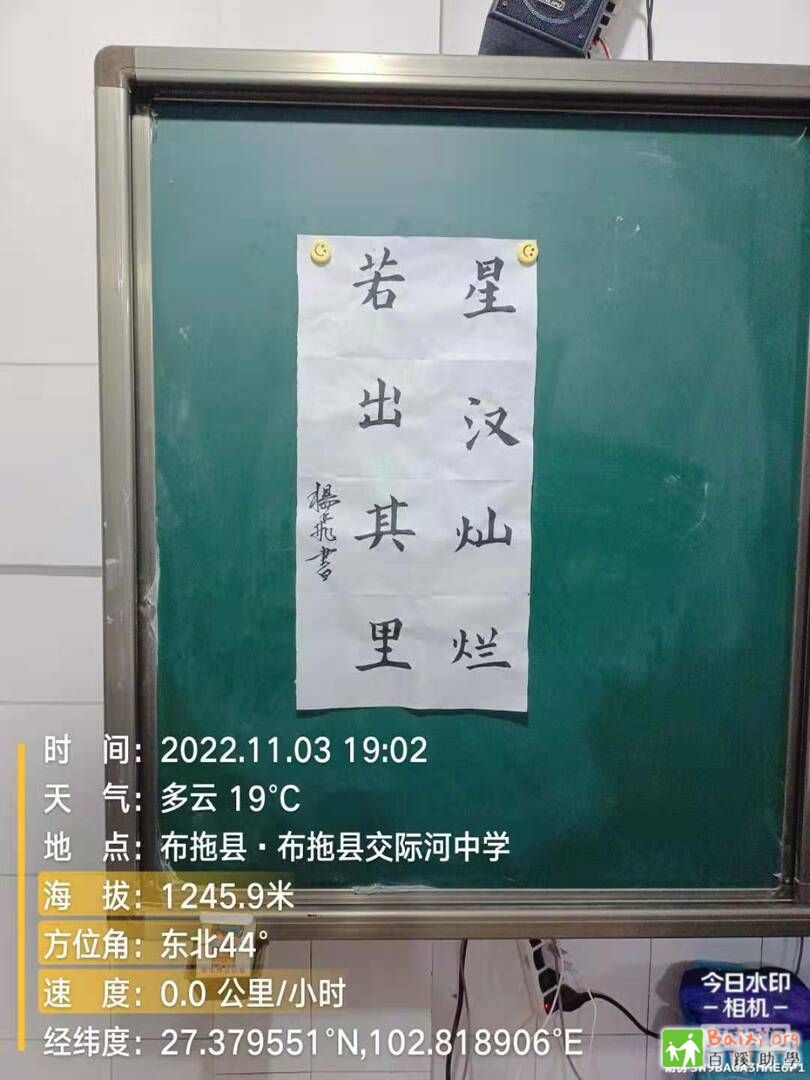 星汉灿烂
若出其里
楊飛書
时 间：2022.11.03 19:02
天 气：多云 19℃
地 点：布拖县·布拖县交际河中学
海 拔：1245.9米
方位角：东北44°
速 度：0.0 公里/小时
经纬度：27.379551°N,102.818906°E
今日水印
-相机-
Baixi.org
百蹊助學